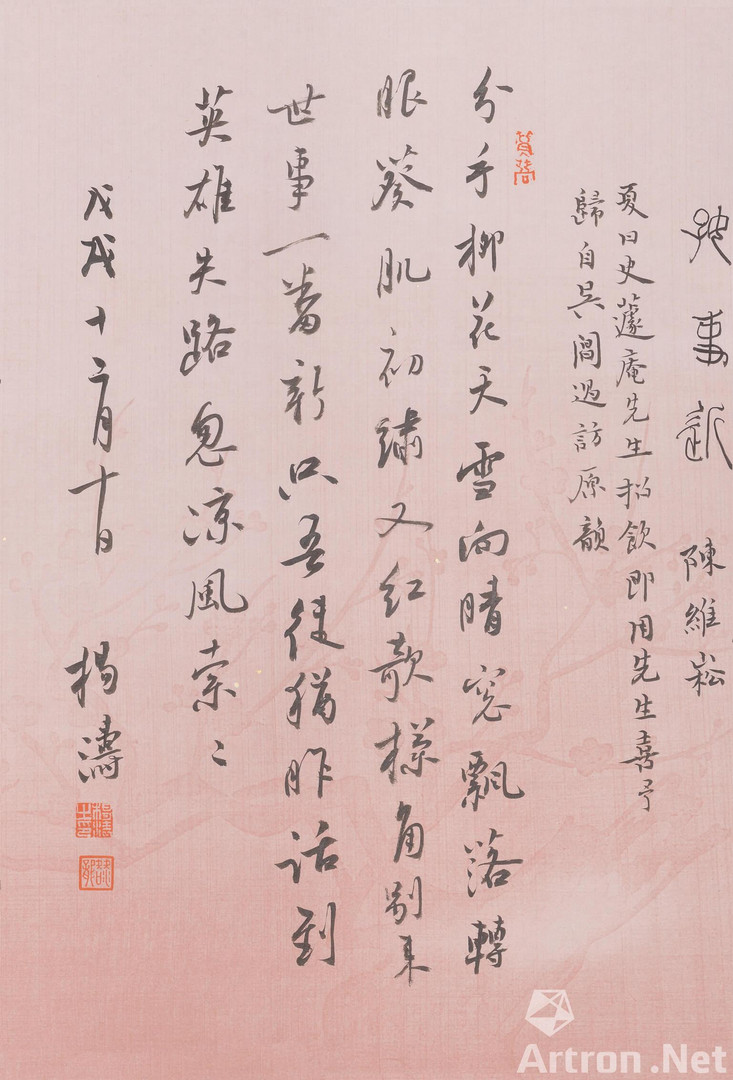 好事近 陳維崧
夏日史蘧庵先生招飲即用先生喜予
歸自吳閶過訪原韻
分手柳花天雪向晴窓飄落轉
眼葵肌初繡又紅欹欄角別来
世事一番新只吾徒猶昨話到
英雄失路忽凉風索〻
戊戌十二月十日
楊濤
Artron.Net